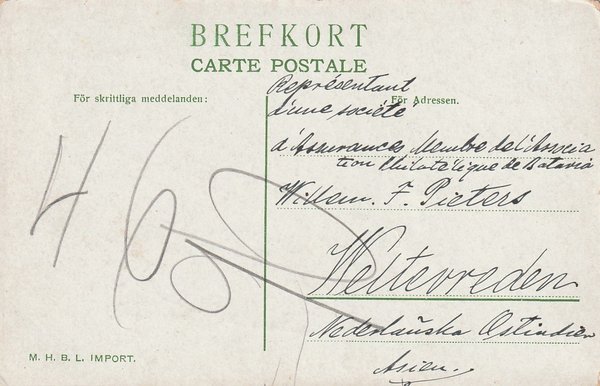 BREFKORT
CARTE POSTALE
För skrittliga meddelanden:
För Adressen.
Représentant
d'une société
d'Assurances Membre de l'Associa
tion Philatélique de Batavia
Willem. F. Pieters
Weltevreden
Nederländska Ostindien
Asien.
46
M. H. B. L. IMPORT.